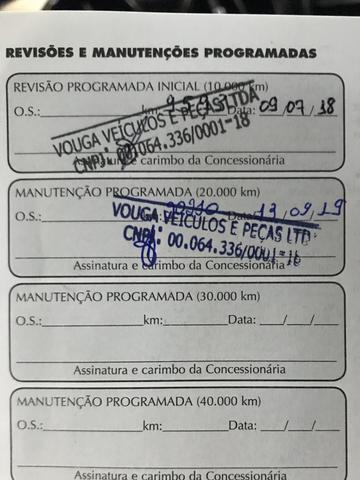 REVISÕES E MANUTENÇÕES PROGRAMADAS
REVISÃO PROGRAMADA INICIAL (10.000 km)
O.S.: km: 9595 Data: 09/07/18
VOUGA VEÍCULOS E PEÇAS LTDA
CNPJ: 00.064.336/0001-18
Assinatura e carimbo da Concessionária
MANUTENÇÃO PROGRAMADA (20.000 km)
O.S.: Data: 13/09/19
VOUGA VEÍCULOS E PEÇAS LTD
CNPJ: 00.064.336/0001-18
Assinatura e carimbo da Concessionária
MANUTENÇÃO PROGRAMADA (30.000 km)
O.S.:____________km:________ Data: ___/___/___
Assinatura e carimbo da Concessionária
MANUTENÇÃO PROGRAMADA (40.000 km)
O.S.:____________km:________ Data: ___/___/___
Assinatura e carimbo da Concessionária